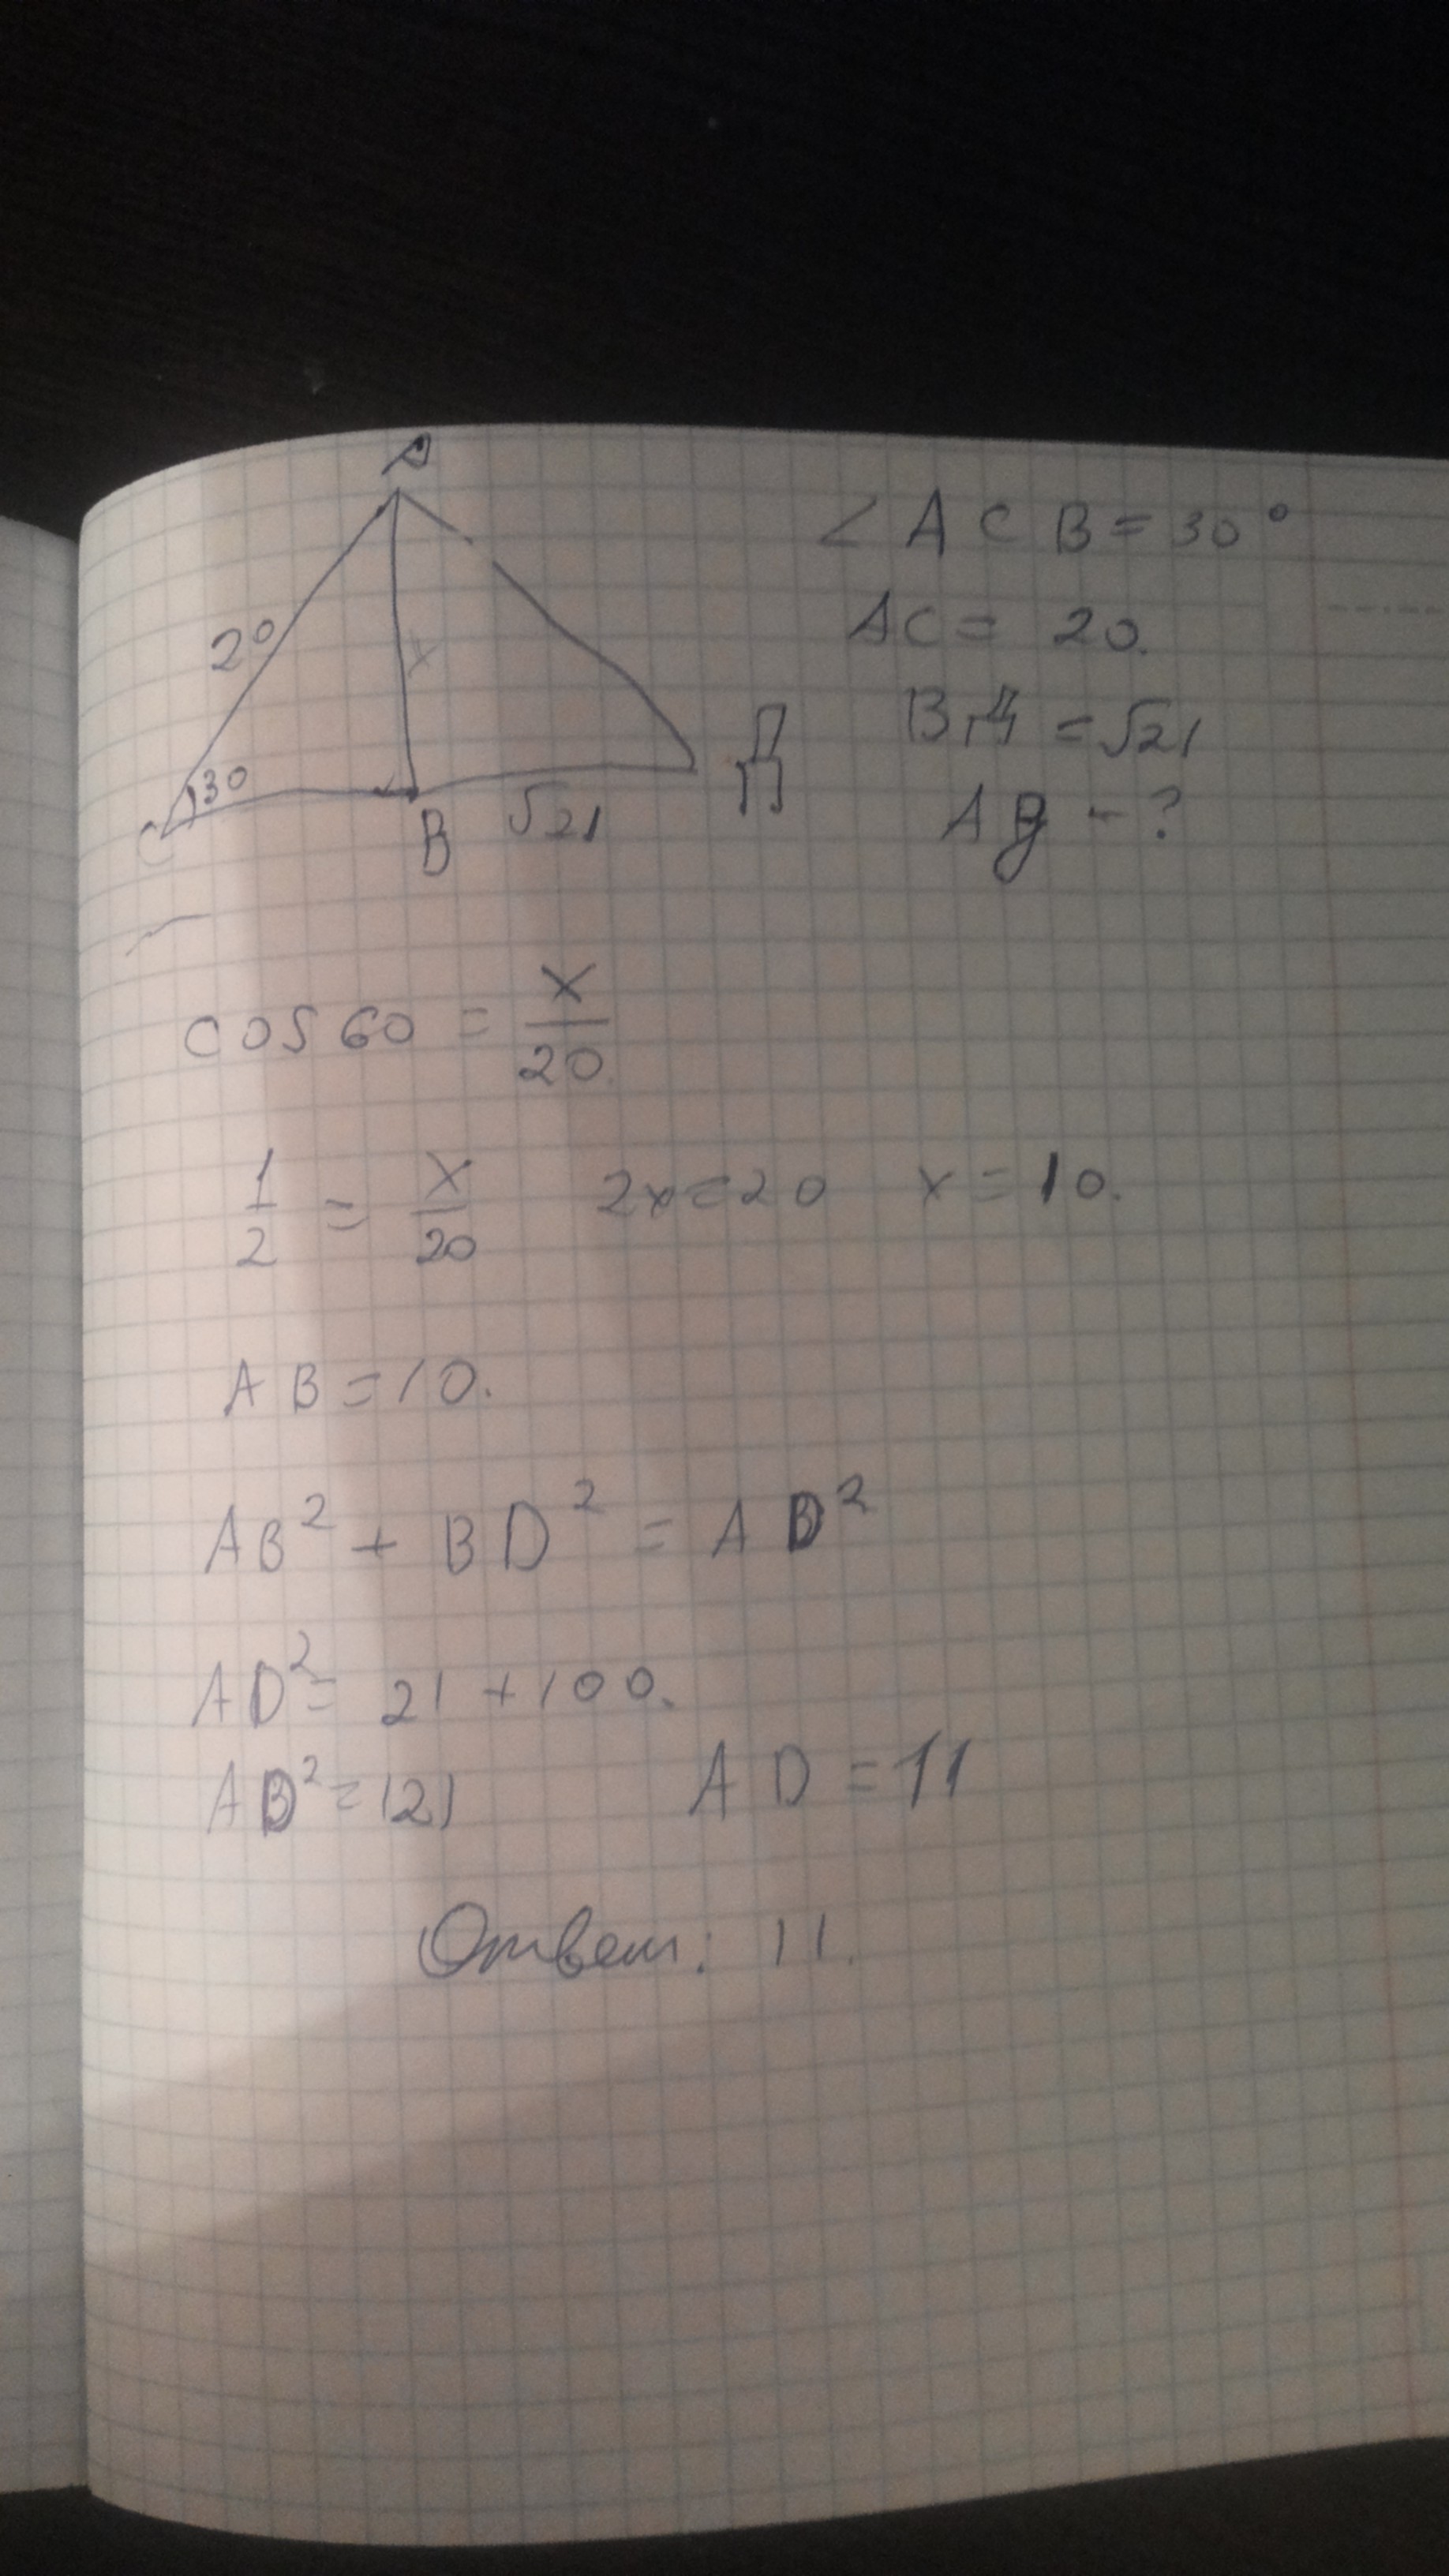 A
20
x
30
C
B
√21
Д
∠ACB = 30°
AC = 20.
BД = √21
AД - ?
cos 60 = x/20
1/2 = x/20 2x=20 x=10.
AB = 10.
AB² + BD² = AD²
AD² = 21 + 100.
AD² = 121 AD = 11
Ответ: 11.